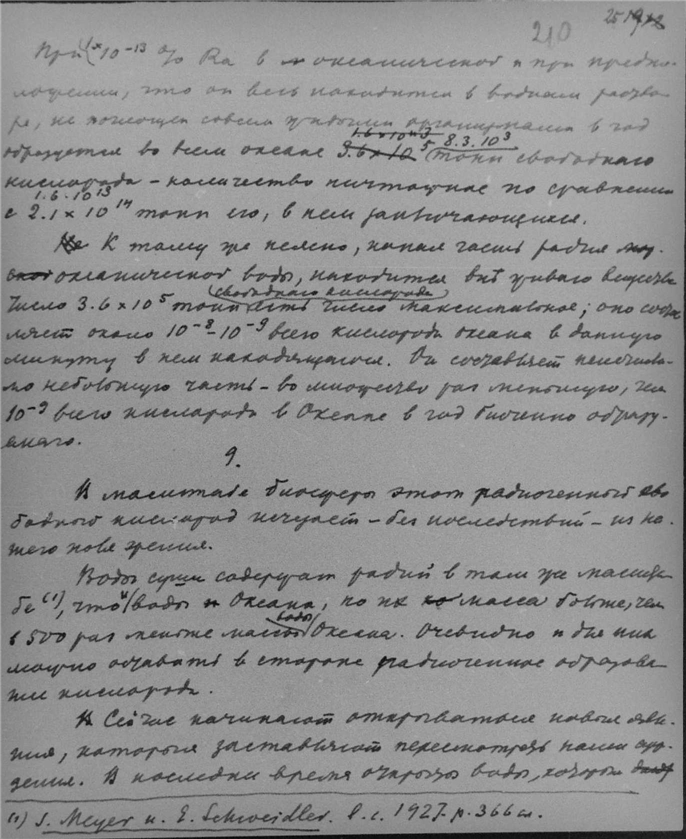 210
При 1 × 10⁻¹³ % Ra в океанической и при предпо-
ложении, что он весь находится в водном раство-
ре, не поглощен совсем живыми организмами в год
1.6 × 10¹³
образуется во всем океане 3.6 × 10⁵ 8.3.10³ тонн свободного
кислорода – количество ничтожное по сравнению
1.6.10¹³
с 2.1 × 10¹⁴ тонн его, в нем заключающихся.
К тому же неясно, какая часть радия
океанической воды, находится вне живого вещества
свободного кислорода
Число 3.6 × 10⁵ тонн есть число максимальное; оно состав
ляет около 10⁻⁸–10⁻⁹ всего кислорода океана в данную
минуту в нем находящегося. Он составляет неисчисли-
мо небольшую часть – во множество раз меньшую, чем
10⁻⁹ всего кислорода в Океане в год биогенно образу-
емого.
9.
В масштабе биосферы этот радиогенный сво
бодный кислород исчезает – без последствий – из на-
шего поля зрения.
Воды суши содержат радий в том же масшта-
бе (1), что и воды Океана, но их масса больше, чем
в 500 раз меньше массы воды Океана. Очевидно и для них
можно оставить в стороне радиогенное образова
ние кислорода.
Сейчас начинают открываться новые явле-
ния, которые заставляют пересмотреть наши суж-
дения. В последнее время открыты воды, которые
(1) S. Meyer u. E. Schweidler. l. c. 1927. p. 366